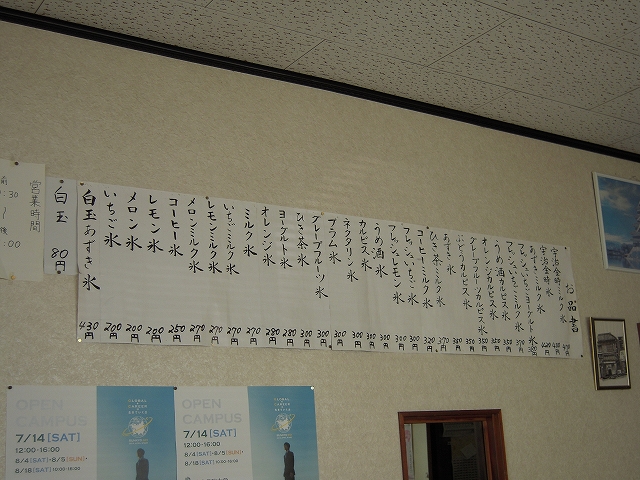 お品書
宇治金時ミルク氷
宇治金時氷
あずきミルク氷
フレッシュいちごヨーグルト氷
フレッシュいちごミルク氷
うめ酒カルピス氷 350円
オレンジカルピス氷 350円
グレープフルーツカルピス氷 350円
ぶどうカルピス氷 350円
あずき氷
ひさ茶ミルク氷 370円
コーヒーミルク氷 320円
フレッシュいちご氷 300円
フレッシュレモン氷 300円
うめ酒氷 300円
カルピス氷 300円
ネクタリン氷 300円
プラム氷 300円
グレープフルーツ氷 300円
ひさ茶氷 300円
ヨーグルト氷 280円
オレンジ氷 280円
ミルク氷 270円
いちごミルク氷 270円
レモンミルク氷 270円
メロンミルク氷 270円
コーヒー氷 250円
レモン氷 200円
メロン氷 200円
いちご氷 200円
白玉あずき氷 430円
白玉 80円
営業時間
OPEN
CAMPUS
7/14[SAT]
12:00-16:00
8/4[SAT]・8/5[SUN]・
8/18[SAT] 10:00-16:00
OPEN
CAMPUS
7/14[SAT]
12:00-16:00
8/4[SAT]・8/5[SUN]・
8/18[SAT] 10:00-16:00